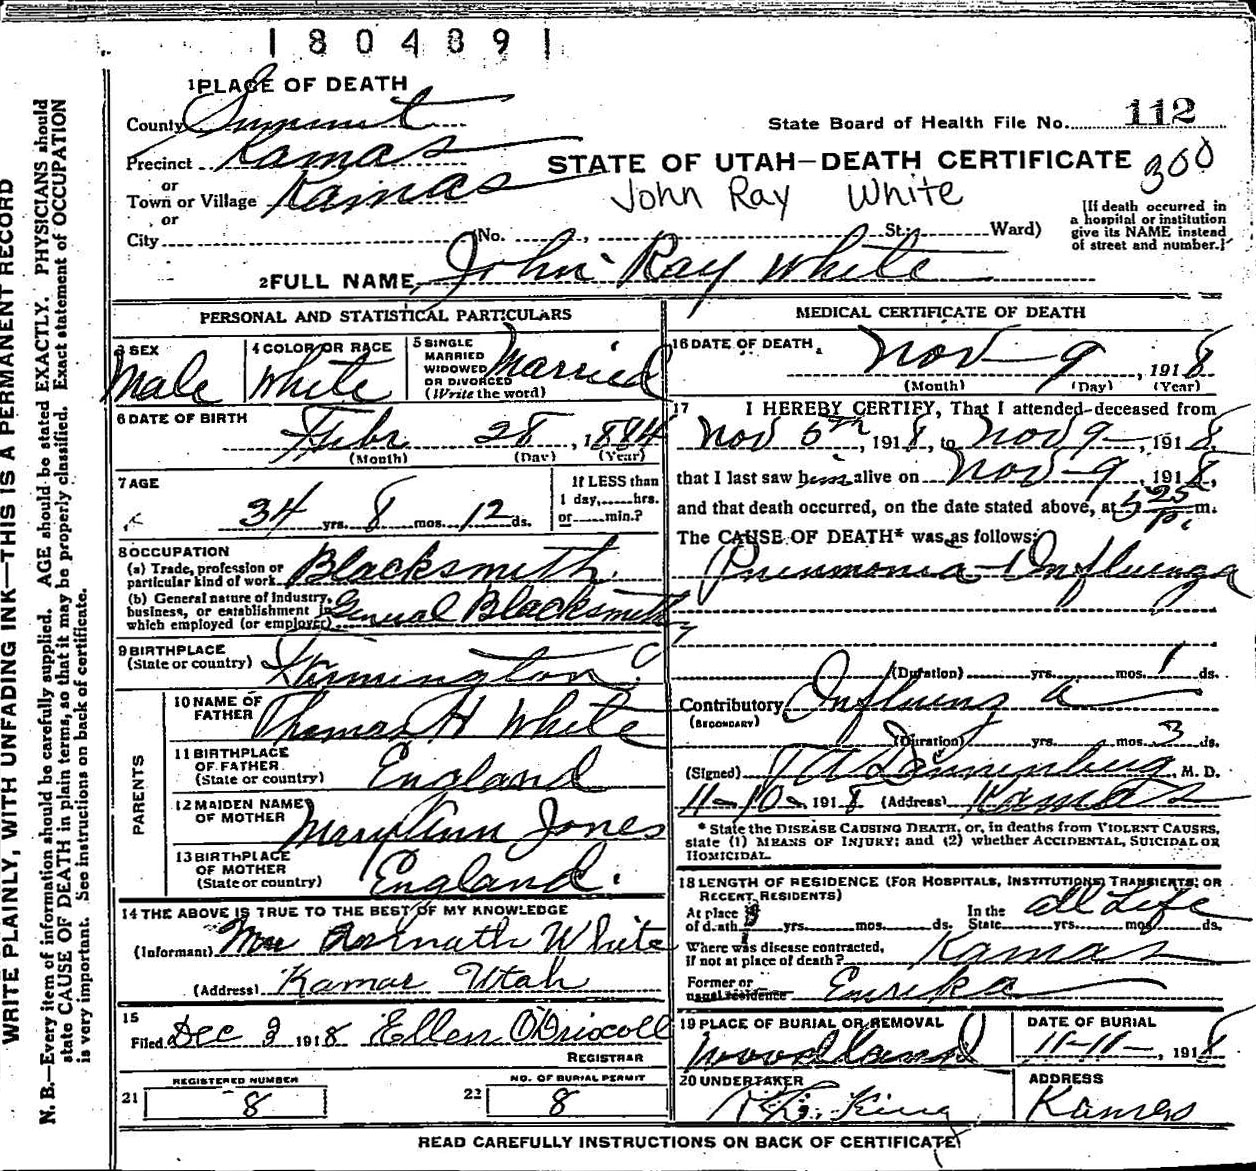 1804891
1 PLACE OF DEATH
County Summit
State Board of Health File No. 112
Precinct Kamas
STATE OF UTAH—DEATH CERTIFICATE 300
or
Town or Village Kamas
John Ray White
or
[If death occurred in
a hospital or institution
give its NAME instead
of street and number.]
City (No. , St.; Ward)
2 FULL NAME John Ray White
PERSONAL AND STATISTICAL PARTICULARS
3 SEX Male
4 COLOR OR RACE White
5 SINGLE
MARRIED
WIDOWED
OR DIVORCED
(Write the word) Married
6 DATE OF BIRTH
Febr 28, 1884
(Month) (Day) (Year)
7 AGE
34 yrs. 8 mos. 12 ds.
If LESS than
1 day, hrs.
or min.?
8 OCCUPATION
(a) Trade, profession or
particular kind of work Blacksmith.
(b) General nature of Industry,
business, or establishment in
which employed (or employer) General Blacksmith
9 BIRTHPLACE
(State or country) Farmington
PARENTS
10 NAME OF
FATHER Thomas H White
11 BIRTHPLACE
OF FATHER
(State or country) England
12 MAIDEN NAME
OF MOTHER Mary Ann Jones
13 BIRTHPLACE
OF MOTHER
(State or country) England.
14 THE ABOVE IS TRUE TO THE BEST OF MY KNOWLEDGE
(Informant) White
(Address) Kamas Utah
15
Filed Dec 2 1918 Ellen O'Driscoll
REGISTRAR
REGISTERED NUMBER
21 8
NO. OF BURIAL PERMIT
22 8
MEDICAL CERTIFICATE OF DEATH
16 DATE OF DEATH
Nov 9, 1918
(Month) (Day) (Year)
17 I HEREBY CERTIFY, That I attended deceased from
Nov 5th, 1918, to Nov 9, 1918,
that I last saw him alive on Nov 9, 1918,
and that death occurred, on the date stated above, at 5 25 P. m.
The CAUSE OF DEATH* was as follows:
Pneumonia - Influenza
(Duration) yrs. mos. 1 ds.
Contributory Influenza
(SECONDARY)
(Duration) yrs. mos. 3 ds.
(Signed) Dannenberg, M. D.
11-10-1918 (Address) Kamas
* State the DISEASE CAUSING DEATH, or, in deaths from VIOLENT CAUSES,
state (1) MEANS OF INJURY; and (2) whether ACCIDENTAL, SUICIDAL OR
HOMICIDAL.
18 LENGTH OF RESIDENCE (FOR HOSPITALS, INSTITUTIONS, TRANSIENTS, OR
RECENT RESIDENTS)
At place
of death yrs. mos. ds.
In the
State yrs. mos. ds. all Life
Where was disease contracted,
if not at place of death? Kamas
Former or
usual residence Eureka
19 PLACE OF BURIAL OR REMOVAL
Woodland
DATE OF BURIAL
11-11-, 1918
20 UNDERTAKER
King
ADDRESS
Kamas
READ CAREFULLY INSTRUCTIONS ON BACK OF CERTIFICATE
WRITE PLAINLY, WITH UNFADING INK—THIS IS A PERMANENT RECORD
N. B.—Every item of information should be carefully supplied. AGE should be stated EXACTLY. PHYSICIANS should
state CAUSE OF DEATH in plain terms, so that it may be properly classified. Exact statement of OCCUPATION
is very important. See instructions on back of certificate.